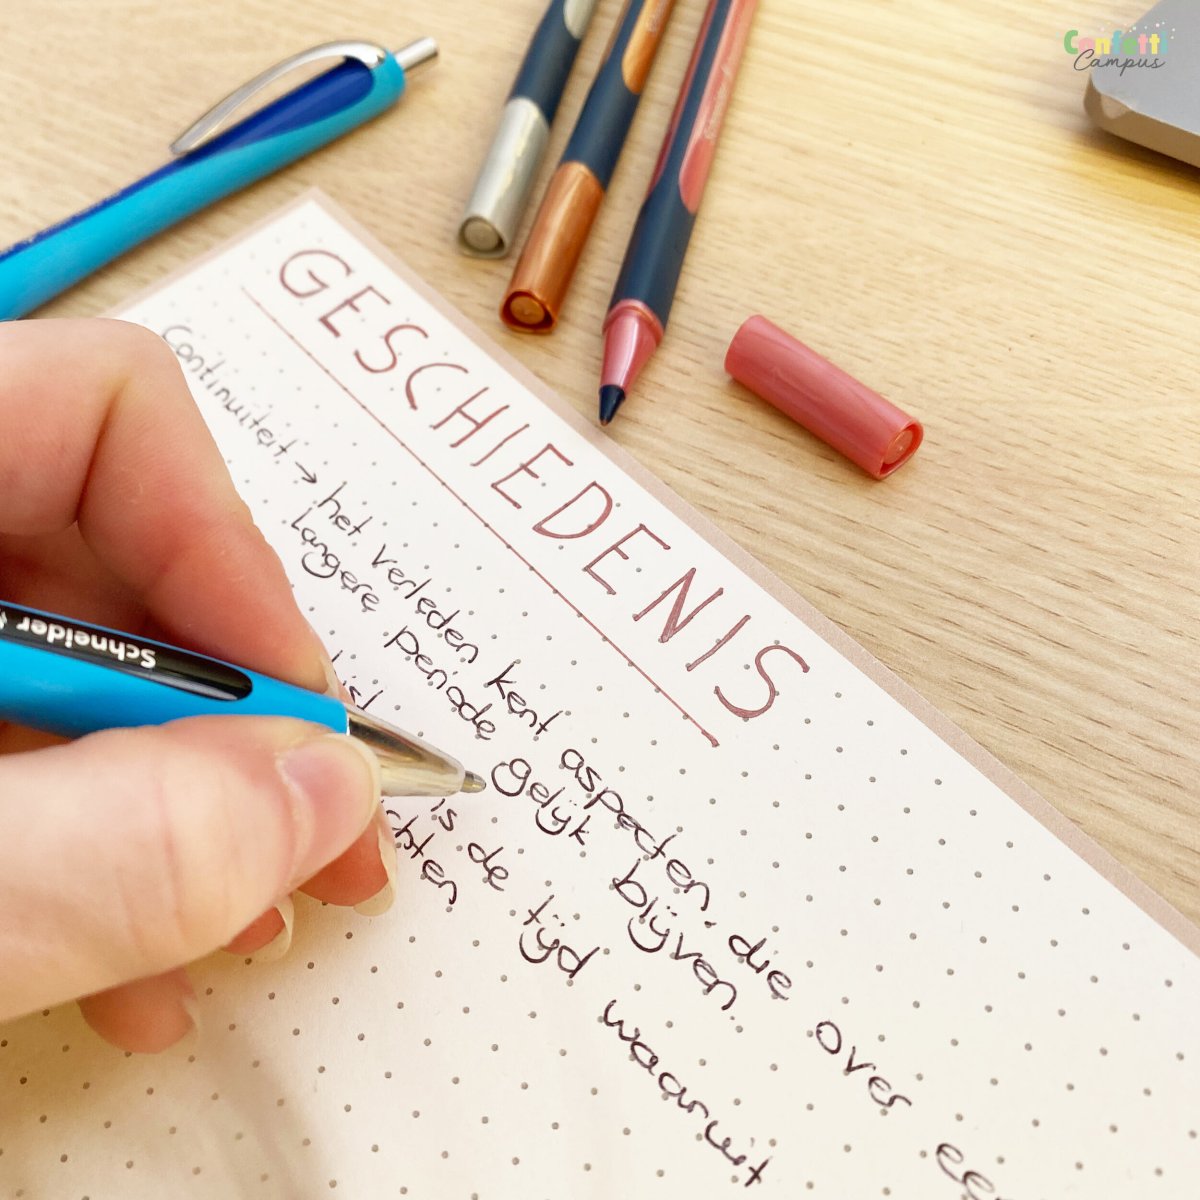 Confetti
Campus
GESCHIEDENIS
Continuiteit → het verleden kent aspecten, die over
langere periode gelijk blijven.
is de tijd waaruit
Schneider